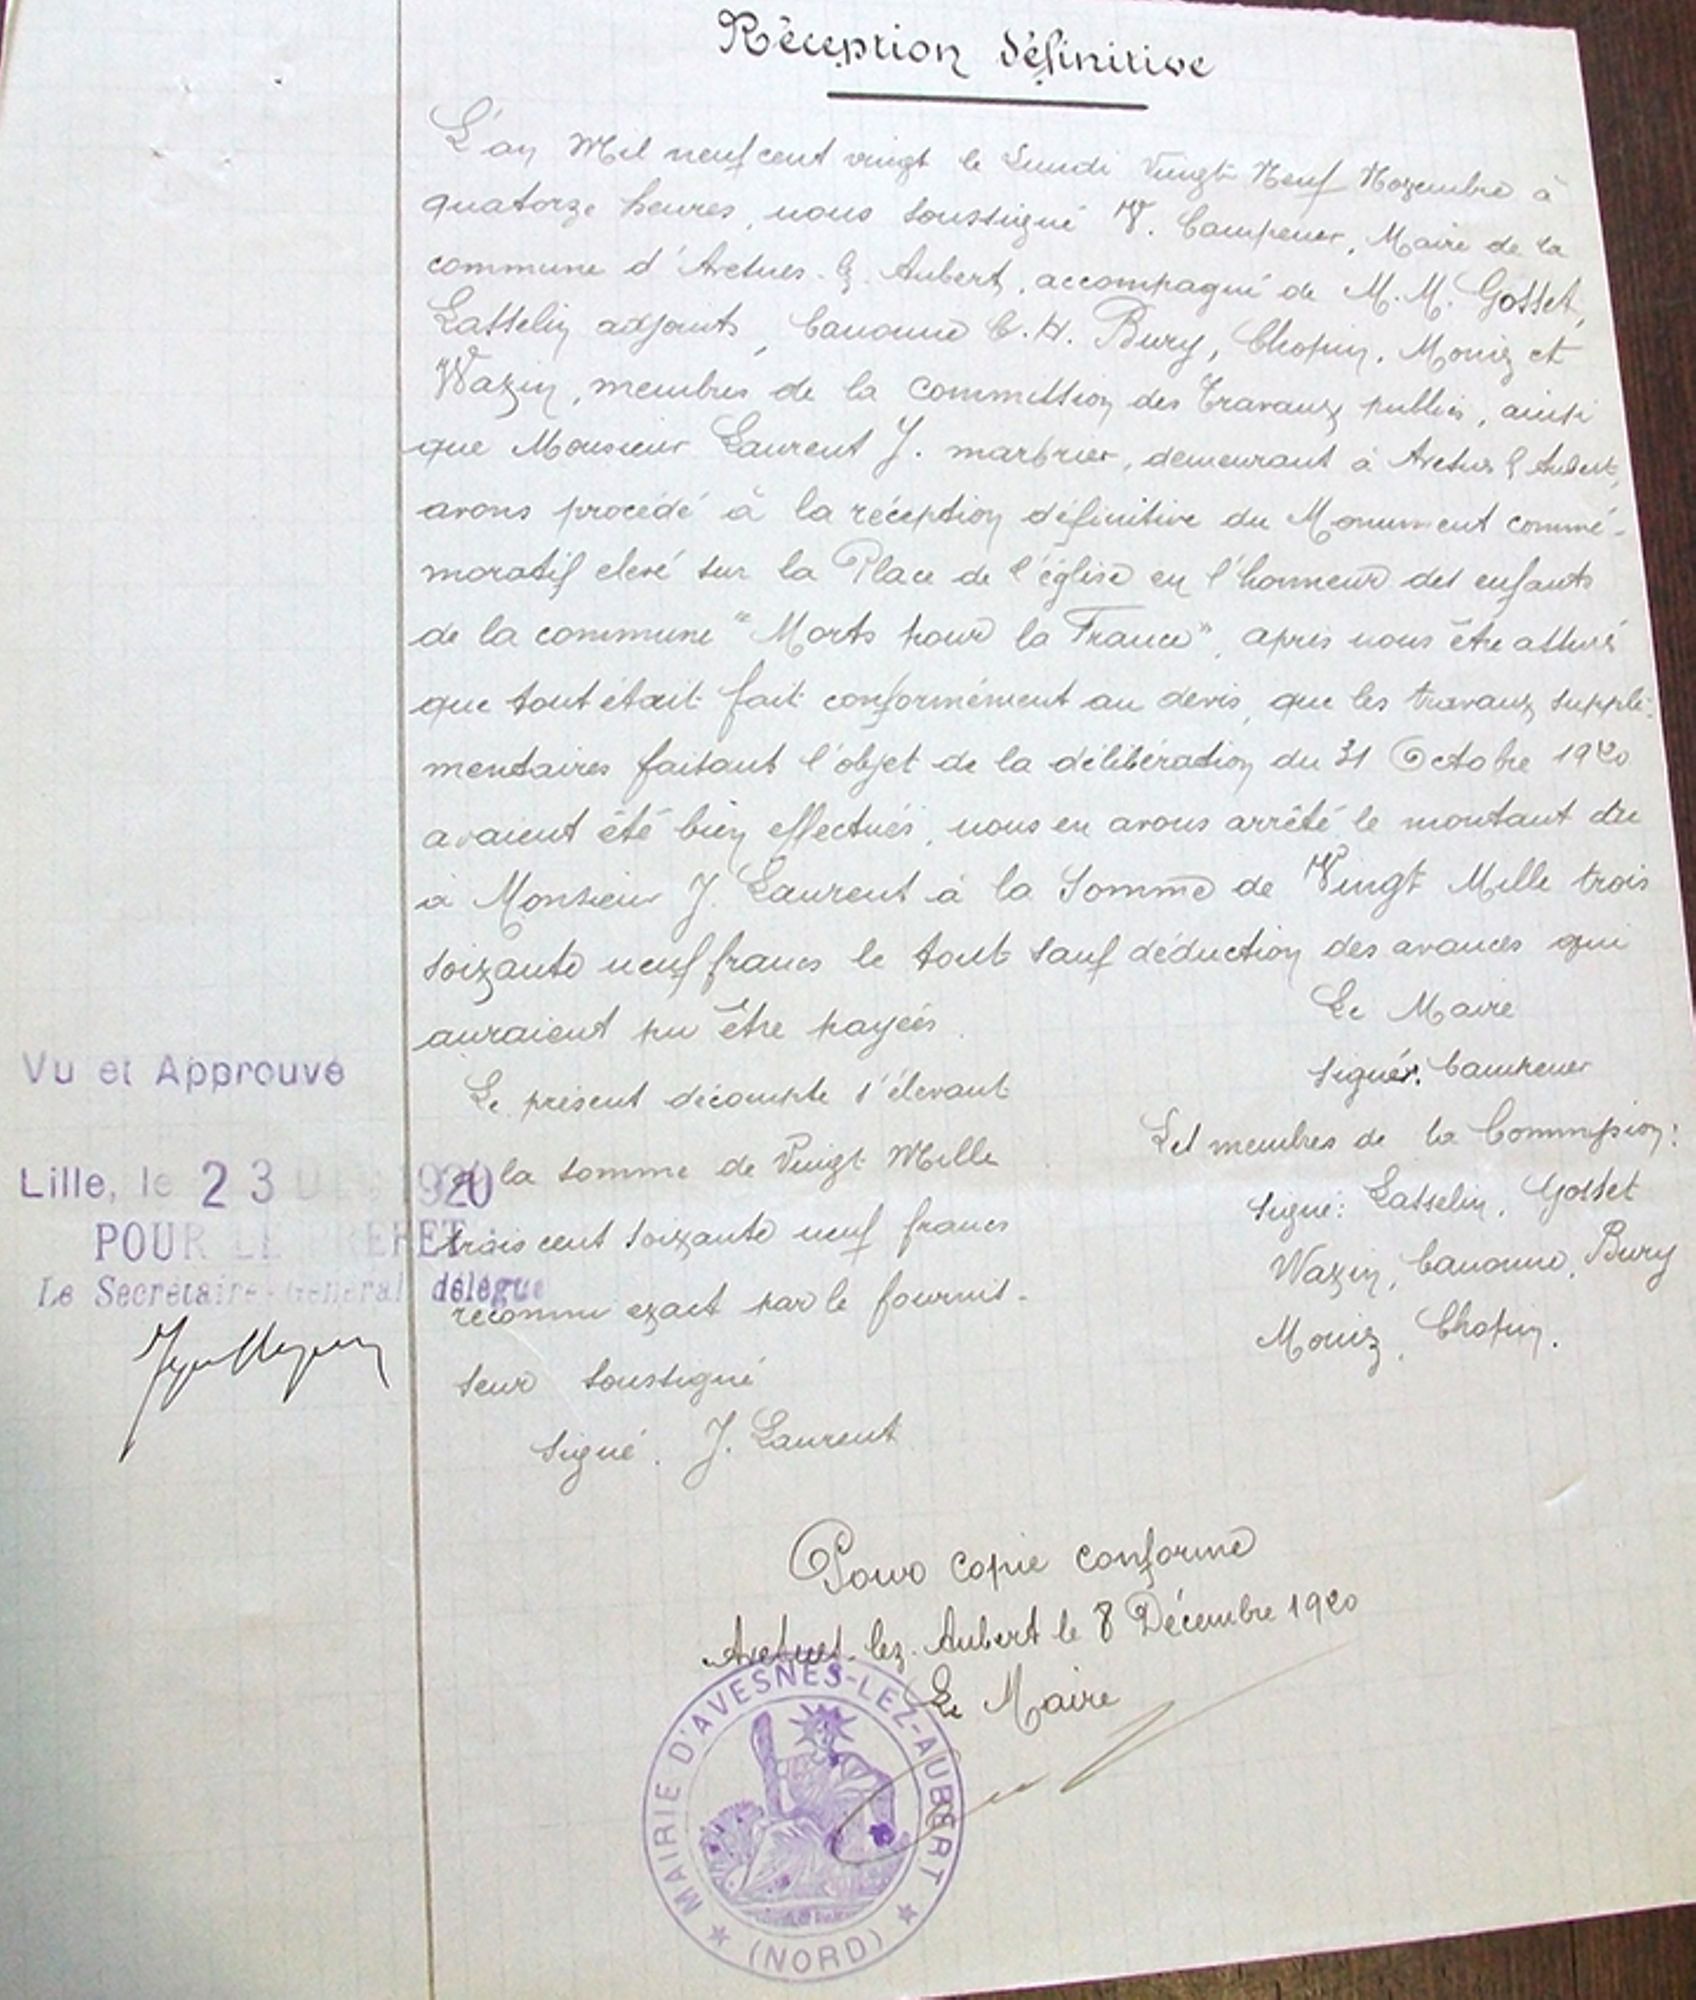 Réception définitive
L'an Mil neuf cent vingt le Lundi Vingt Neuf Novembre à
quatorze heures, nous soussigné V. Campener, Maire de la
commune d'Avesnes-lz-Aubert, accompagné de M.M. Gosset,
Lasselin adjoints, Canonne C.H. Bury, Chopin, Moniez et
Wazin, membres de la Commission des Travaux publics, ainsi
que Monsieur Laurent J. marbrier, demeurant à Avesnes l Aubert,
avons procédé à la réception définitive du Monument commé-
moratif elevé sur la Place de l'église en l'honneur des enfants
de la commune "Morts pour la France", après nous être assuré
que tout était fait conformément au devis, que les travaux supplé-
mentaires faisant l'objet de la délibération du 31 Octobre 1920
avaient été bien effectués, nous en avons arrêté le montant du
à Monsieur J. Laurent à la Somme de Vingt Mille trois
soixante neuf francs le tout sauf déduction des avances qui
auraient pu être payées.
Le présent décompte s'élevant
à la somme de Vingt Mille
trois cent soixante neuf francs
reconnu exact par le fournis-
seur soussigné
Signé. J. Laurent
Le Maire
Signé: Campener
Les membres de la Commission:
Signé: Lasselin, Gosset
Wazin, Canonne, Bury
Moniez, Chopin.
Vu et Approuvé
Lille, le 23 DEC 1920
POUR LE PREFET
Le Secrétaire-Général délégué
Pour copie conforme
Avesnes-lez-Aubert le 8 Décembre 1920
Le Maire
MAIRIE D'AVESNES-LEZ-AUBERT
(NORD)